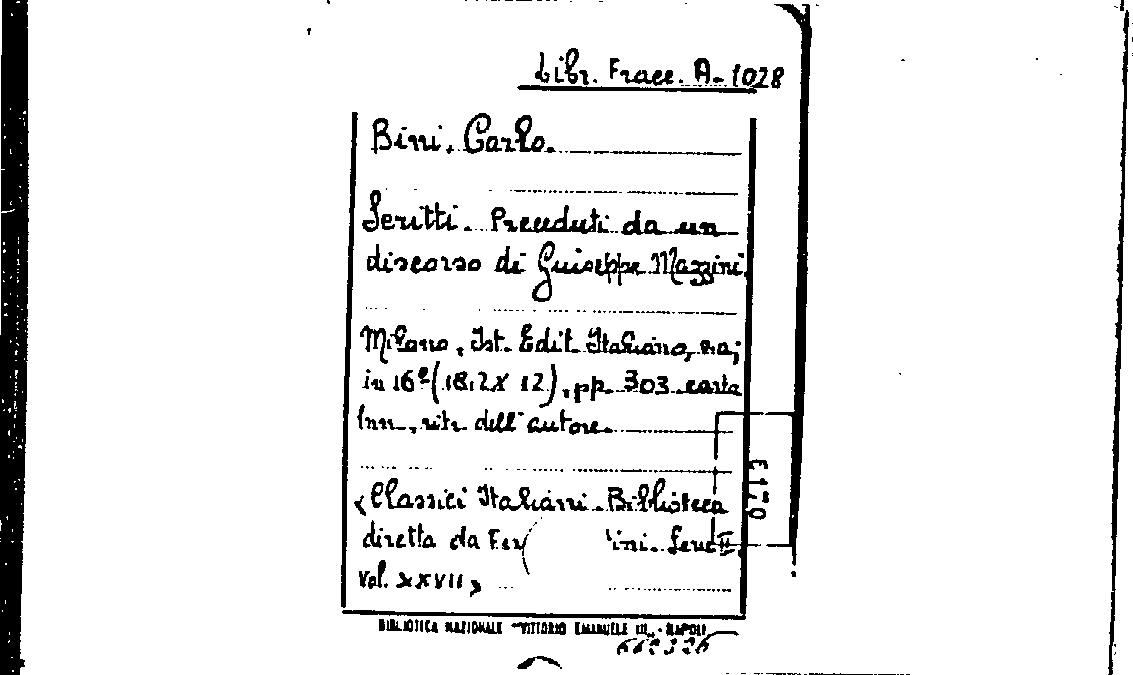 Libr. Fracc. A-1028
Bini. Carlo.
Scritti. Preceduti da un
discorso di Giuseppe Mazzini.
Milano, Ist. Edit. Italiano, s.a;
in 16º (18,2X 12), pp. 303 carta
1nn., ritr. dell'autore.
«Classici Italiani. Biblioteca
diretta da Fer ini. Serie II,
Vol. XXVII»
BIBLIOTECA NAZIONALE "VITTORIO EMANUELE III" - NAPOLI